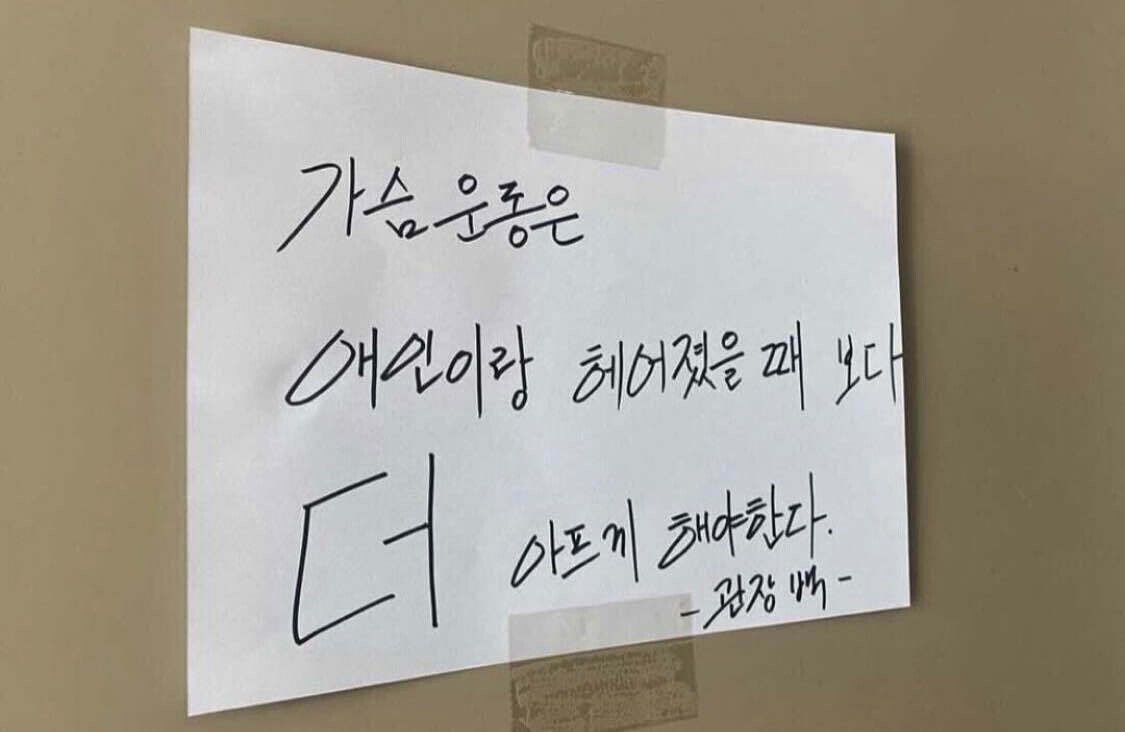 가슴 운동은
애인이랑 헤어졌을 때 보다
더 아프게 해야한다.
- 관장 백 -